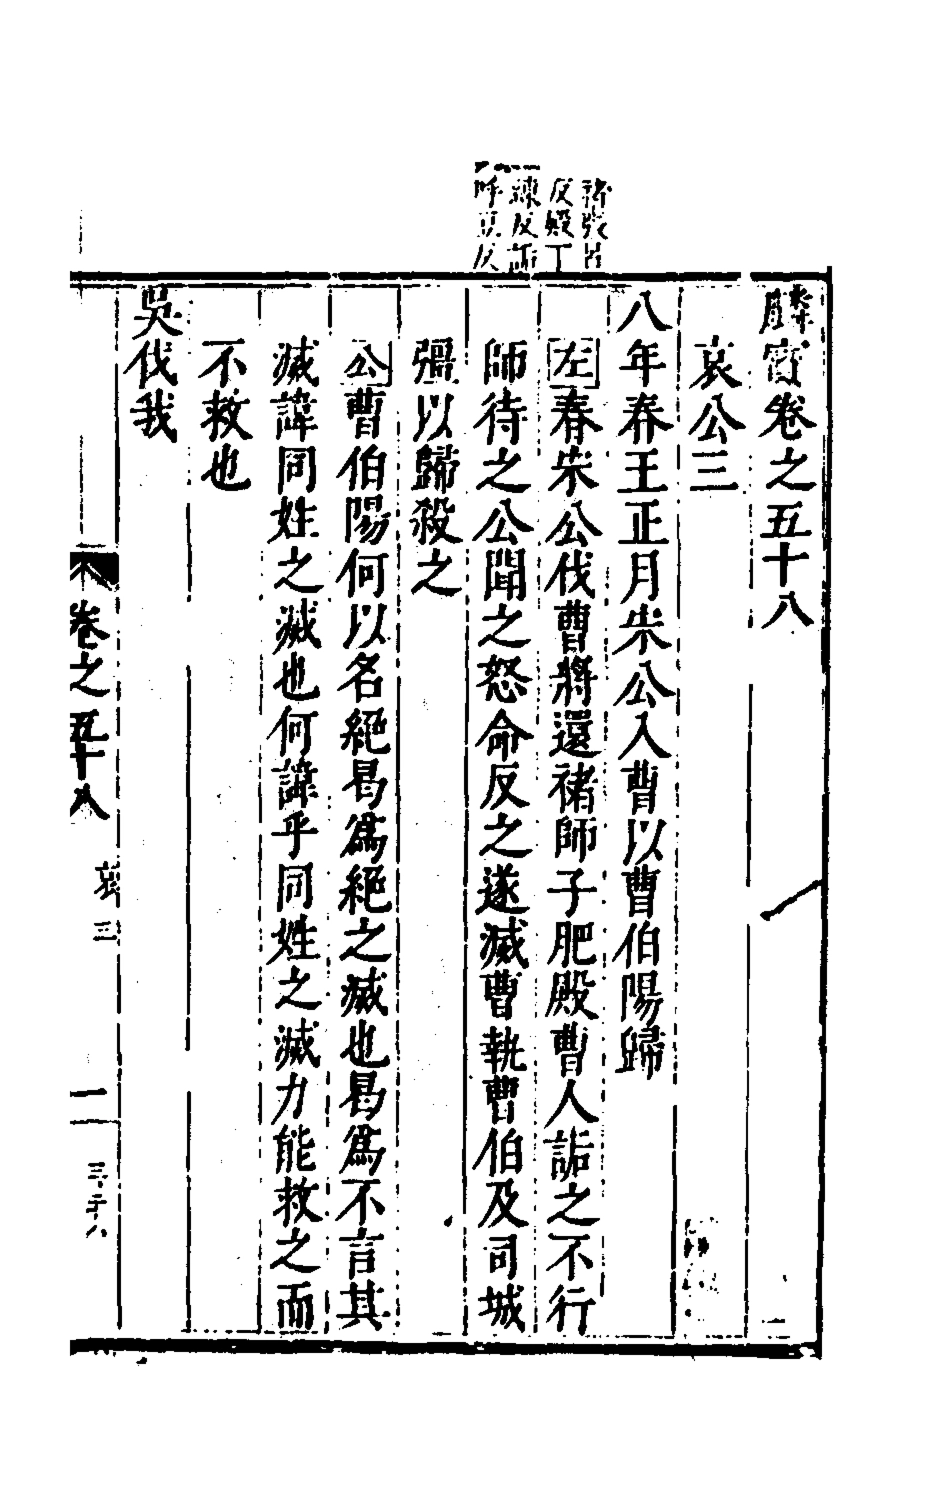 褚張呂
反殿丁
練反詬
呼豆反
麟寶卷之五十八
哀公三
八年春王正月宋公入曹以曹伯陽歸
左春宋公伐曹將還褚師子肥殿曹人詬之不行
師待之公聞之怒命反之遂滅曹執曹伯及司城
彊以歸殺之
公曹伯陽何以名絕曷爲絕之滅也曷爲不言其
滅諱同姓之滅也何諱乎同姓之滅力能救之而
不救也
吳伐我
卷之五十八
哀三
一